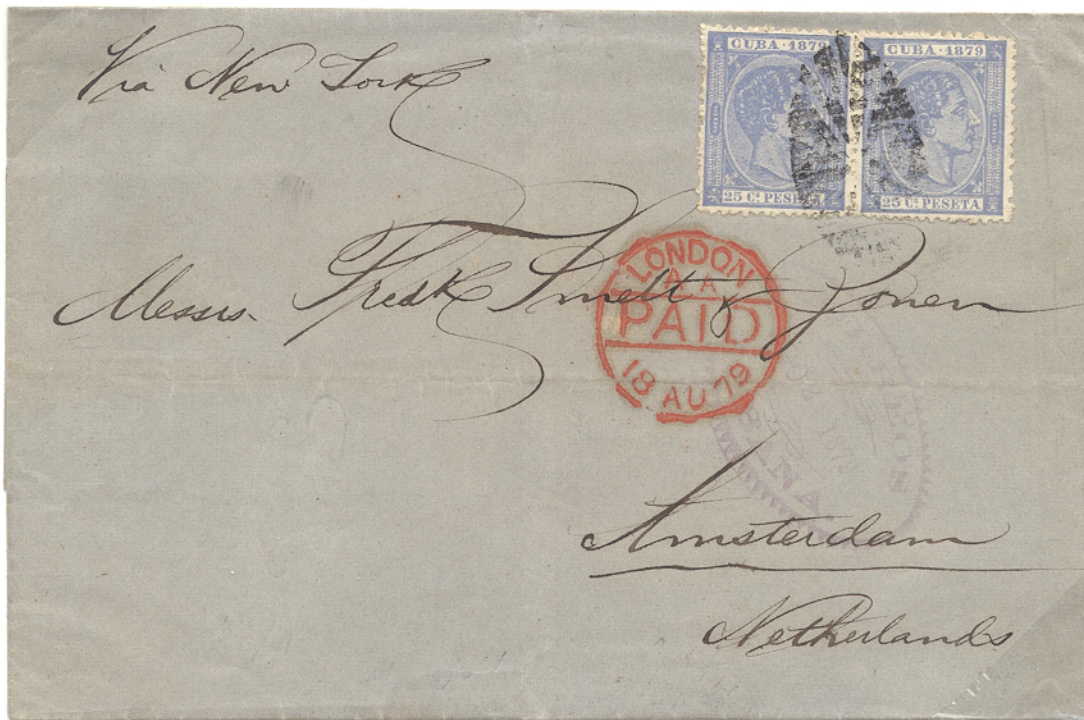 Via New York
CUBA · 1879
25 Cs PESETA
CUBA · 1879
25 Cs PESETA
Messrs. Fredk Smelt & Zonen
LONDON
A A
PAID
18 AU 79
Amsterdam
Netherlands